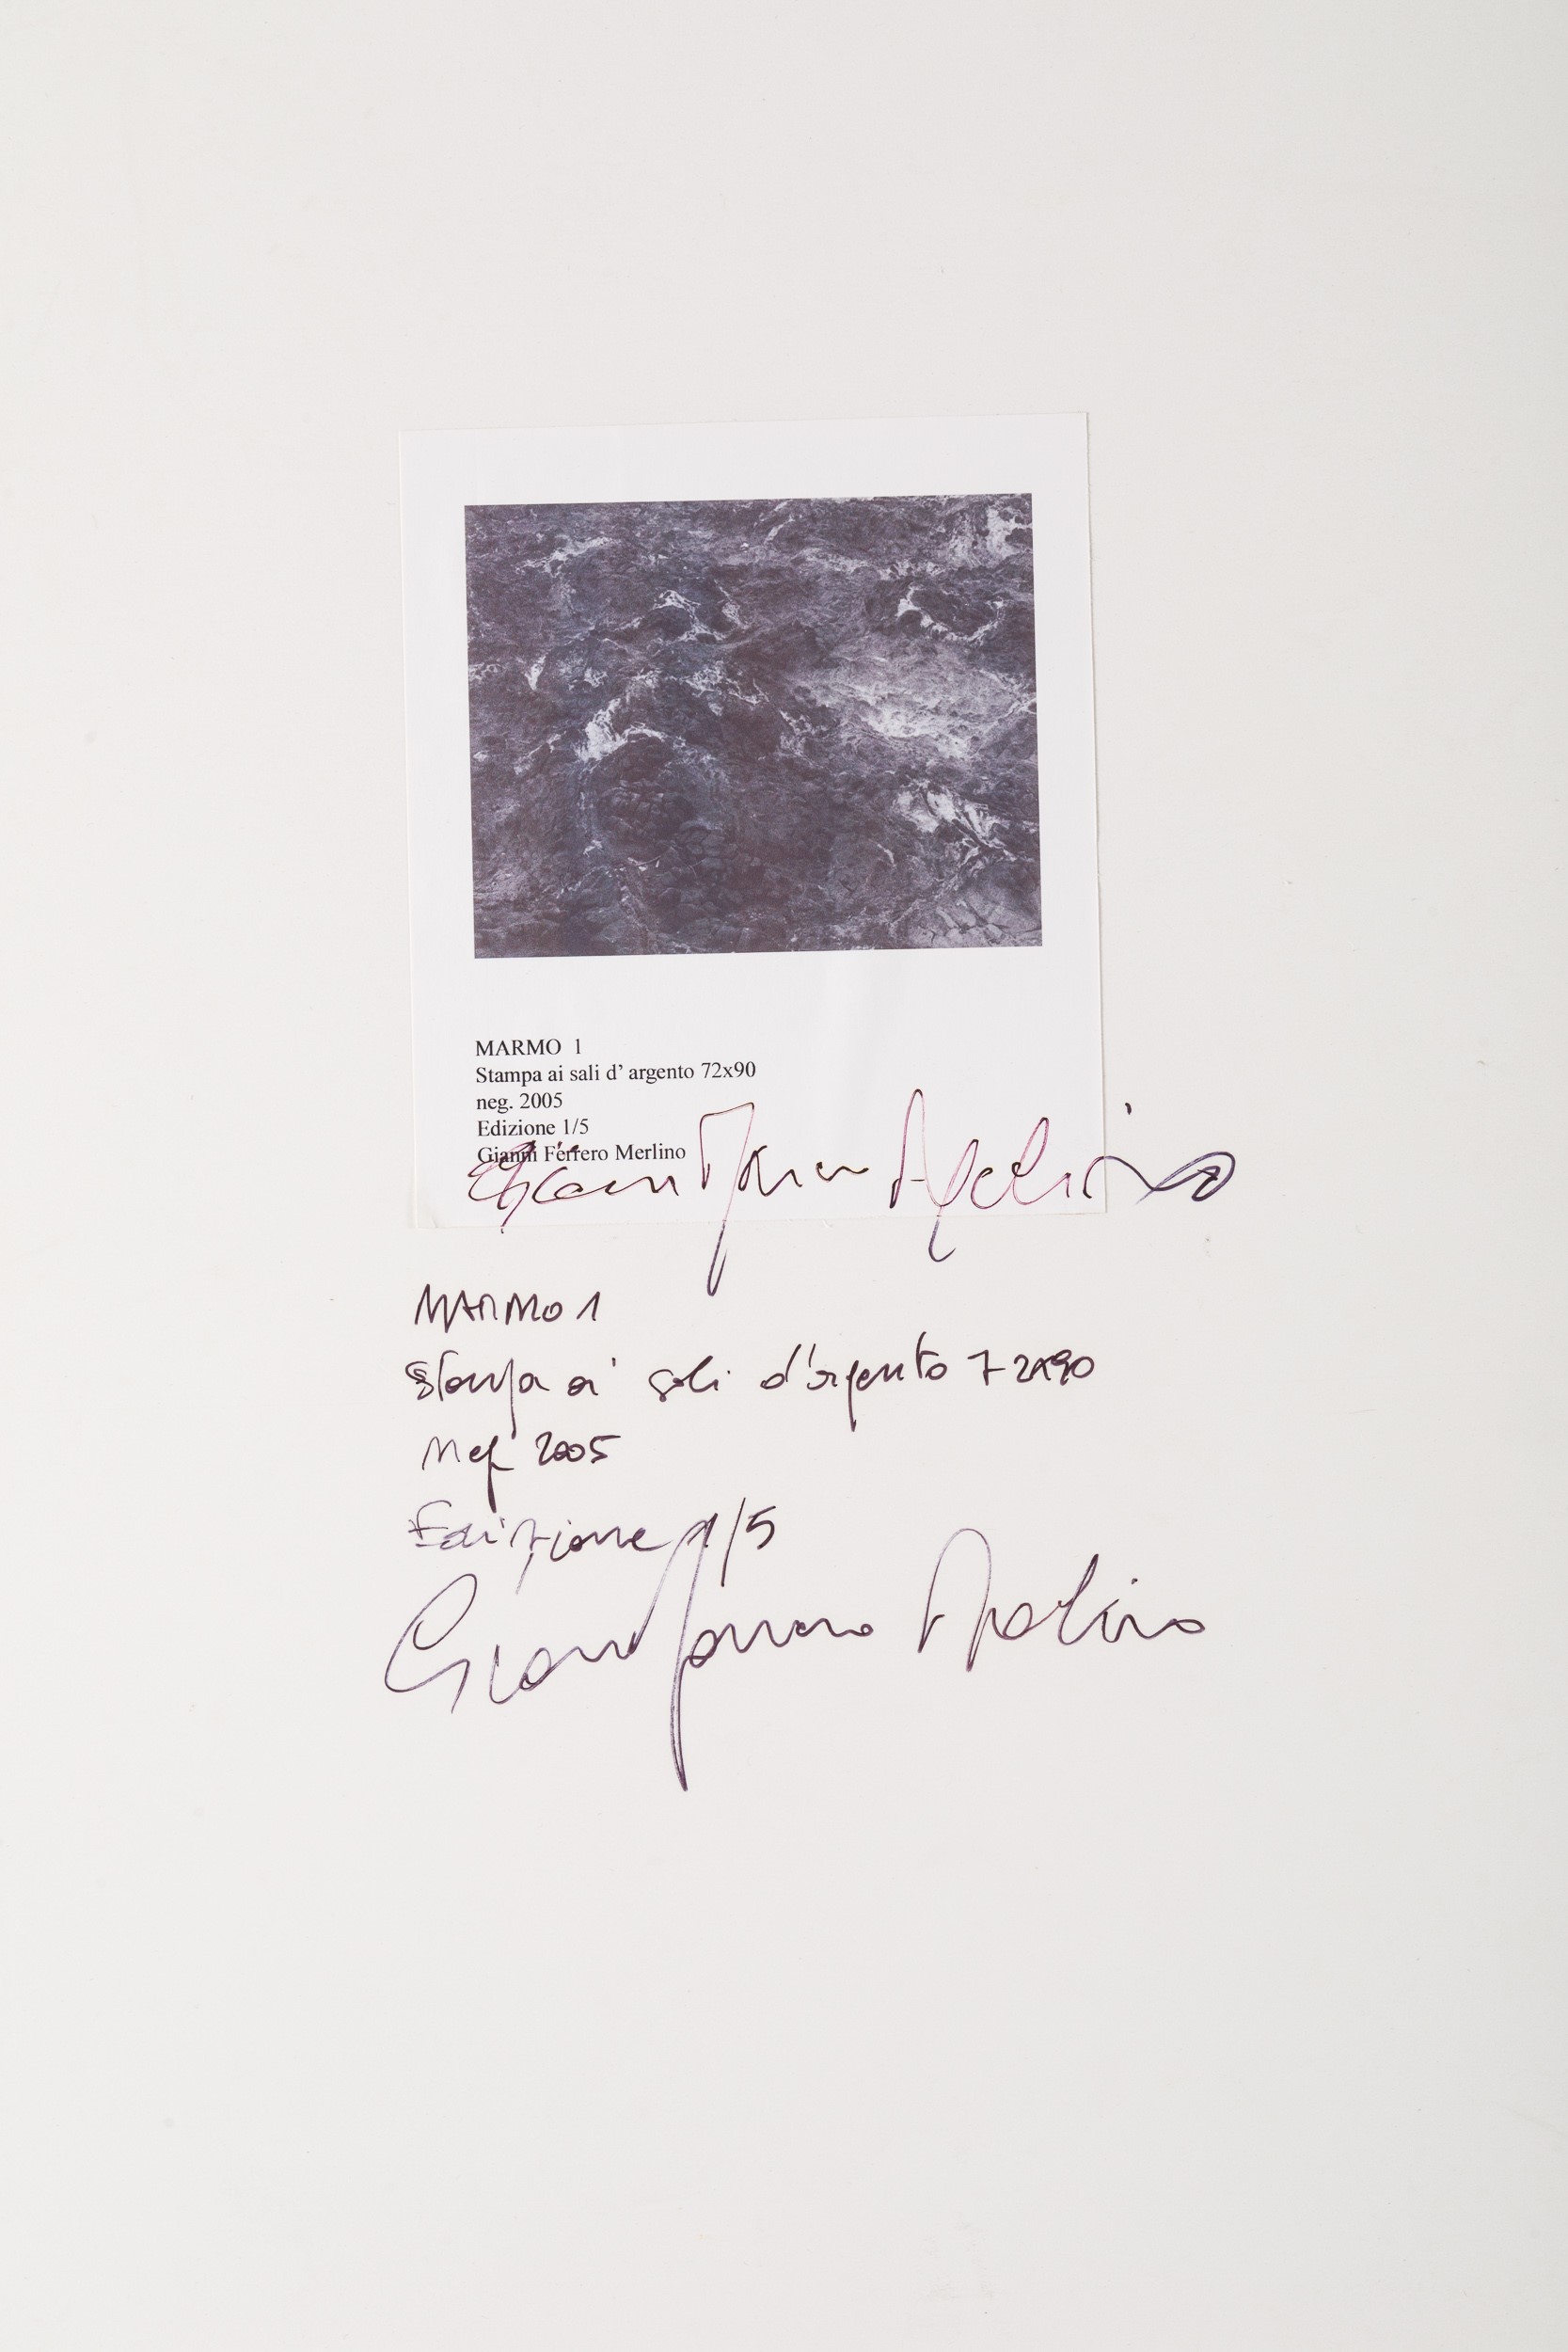 MARMO 1
Stampa ai sali d' argento 72x90
neg. 2005
Edizione 1/5
Gianni Ferrero Merlino
Gianni Ferrero Merlino
MARMO 1
Stampa ai sali d'argento 72x90
neg 2005
Edizione 1/5
Gianni Ferrero Merlino